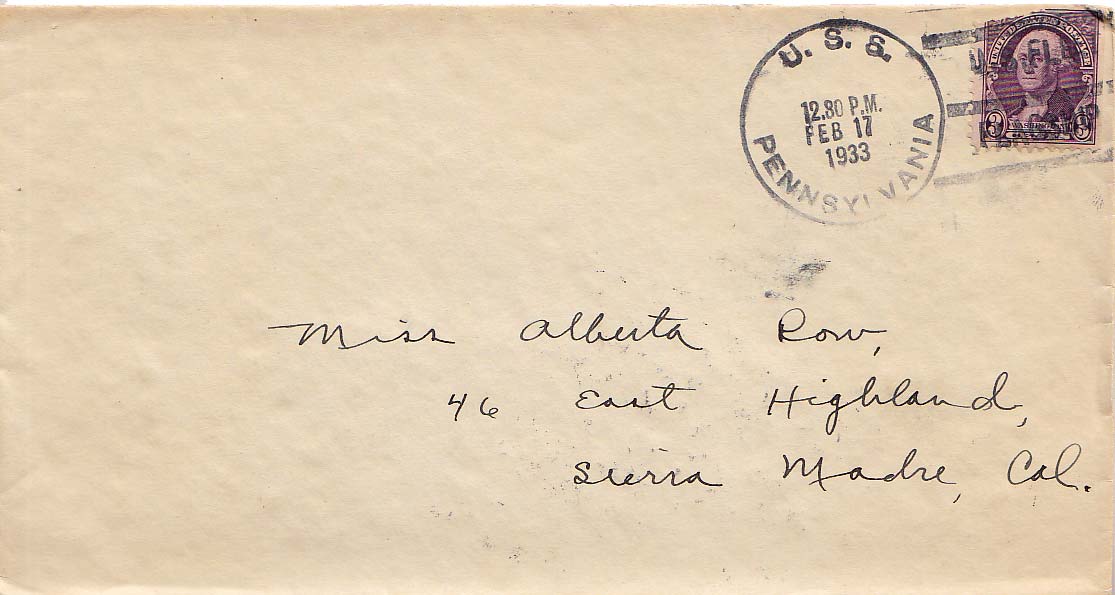 U. S. S.
12.30 P.M.
FEB 17
1933
PENNSYLVANIA
UNITED STATES POSTAGE
3 3
Miss Alberta Row,
46 East Highland,
Sierra Madre, Cal.